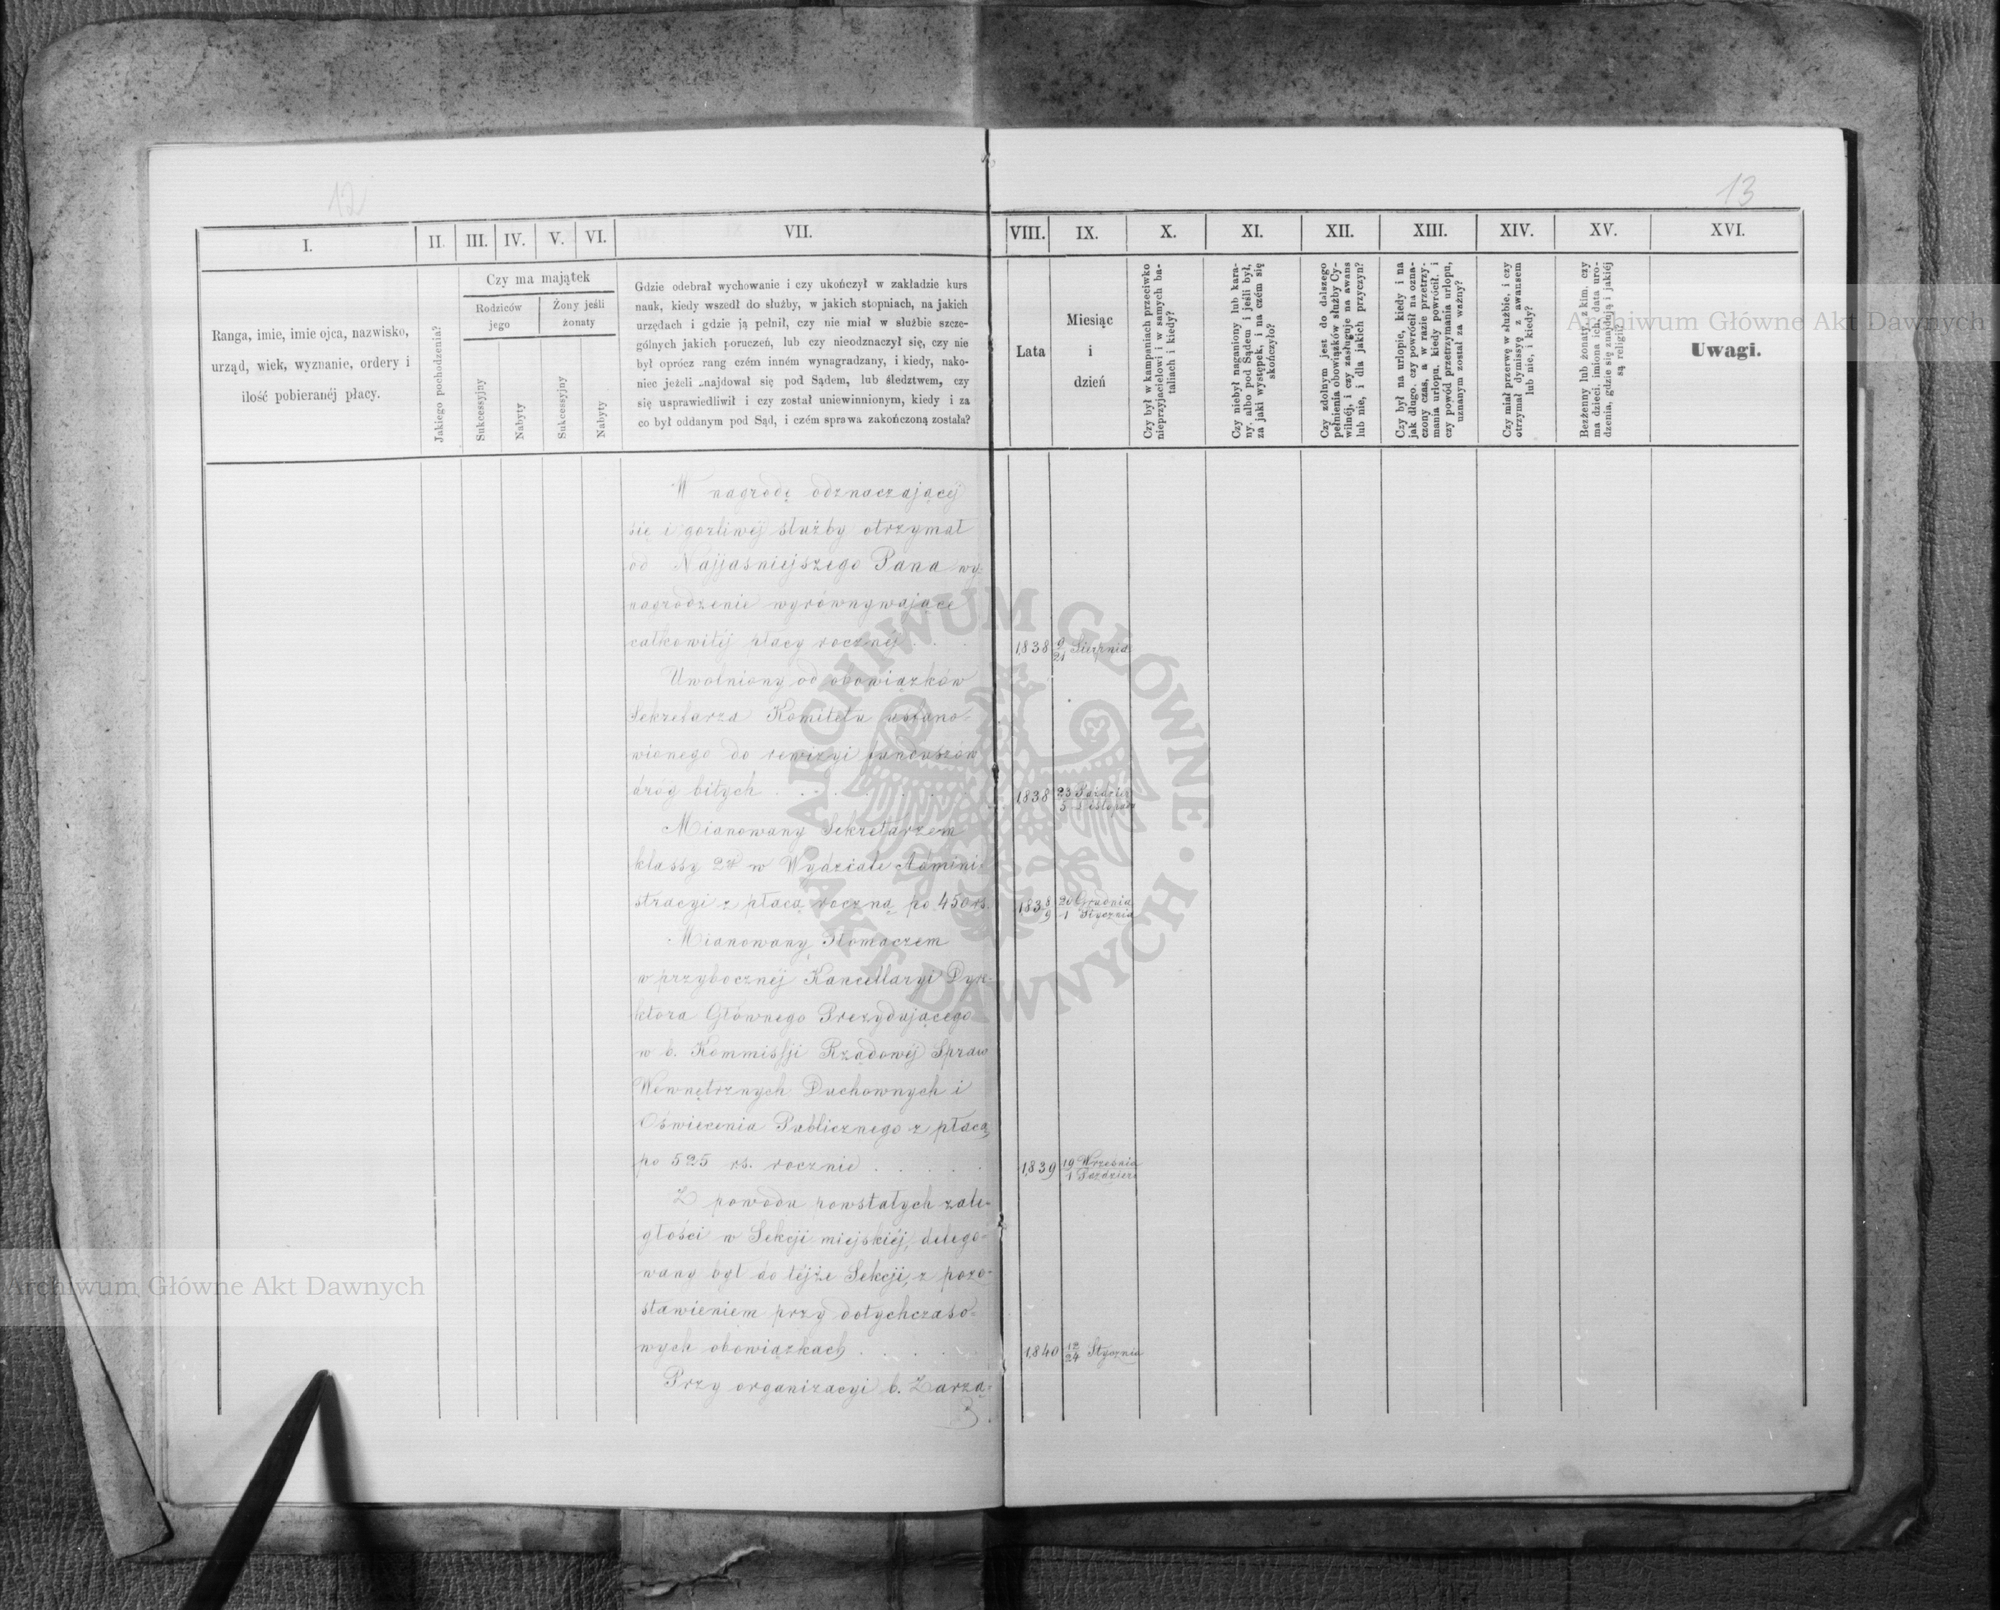 12
13
I.
II.
III.
IV.
V.
VI.
VII.
VIII.
IX.
X.
XI.
XII.
XIII.
XIV.
XV.
XVI.
Ranga, imie, imie ojca, nazwisko,
urząd, wiek, wyznanie, ordery i
ilość pobieranéj płacy.
Jakiego pochodzenia?
Czy ma majątek
Rodziców
jego
Żony jeśli
żonaty
Sukcessyjny
Nabyty
Sukcessyjny
Nabyty
Gdzie odebrał wychowanie i czy ukończył w zakładzie kurs
nauk, kiedy wszedł do służby, w jakich stopniach, na jakich
urzędach i gdzie ją pełnił, czy nie miał w służbie szcze-
gólnych jakich poruczeń, lub czy nieodznaczył się, czy nie
był oprócz rang czém inném wynagradzany, i kiedy, nako-
niec jeżeli znajdował się pod Sądem, lub śledztwem, czy
się usprawiedliwił i czy został uniewinnionym, kiedy i za
co był oddanym pod Sąd, i czém sprawa zakończoną została?
Lata
Miesiąc
i
dzień
Czy był w kampaniach przeciwko
nieprzyjacielowi i w samych ba-
taliach i kiedy?
Czy niebył naganiony lub kara-
ny, albo pod Sądem i jeśli był,
za jaki występek, i na czém się
skończyło?
Czy zdolnym jest do dalszego
pełnienia obowiązków służby Cy-
wilnéj, i czy zasługuje na awans
lub nie, i dla jakich przyczyn?
Czy był na urlopie, kiedy i na
jak długo, czy powrócił na ozna-
czony czas, a w razie przetrzy-
mania urlopu, kiedy powrócił, i
czy powód przetrzymania urlopu,
uznanym został za ważny?
Czy miał przerwę w służbie, i czy
otrzymał dymissyę z awansem
lub nie, i kiedy?
Bezżenny lub żonaty, z kim, czy
ma dzieci, imiona ich, data uro-
dzenia, gdzie się znajdują i jakiéj
są religii?
Uwagi.
W nagrodę odznaczającej
się i gorliwéj służby otrzymał
od Najjaśniejszego Pana wy-
nagrodzenie wyrównywające
całkowitéj płacy rocznéj . . .
1838 9/21 Sierpnia
Uwolniony od obowiązków
Sekretarza Komitetu ustano-
wionego do rewizyi funduszów
dróg bitych . . . . . .
1838 23 Paździer / 5 Listopada
Mianowany Sekretarzem
klassy 2éj w Wydziale Admini-
stracyi z płacą roczną po 450 rs.
1838/9 20 Grudnia / 1 Stycznia
Mianowany Tłomaczem
w przybocznéj Kancellaryi Dyre-
ktora Głównego Prezydującego
w b. Kommissji Rządowéj Spraw
Wewnętrznych Duchownych i
Oświecenia Publicznego z płacą
po 525 rs. rocznie . . . . .
1839 19 Września / 1 Paździer
Z powodu powstałych zale-
głości w Sekcji miejskiéj, delego-
wany był do tejże Sekcji, z pozo-
stawieniem przy dotychczaso-
wych obowiązkach . . . . .
1840 12/24 Stycznia
Przy organizacyi b. Zarzą-
3.
Archiwum Główne Akt Dawnych
Archiwum Główne Akt Dawnych
ARCHIWUM GŁÓWNE · AKT DAWNYCH ·